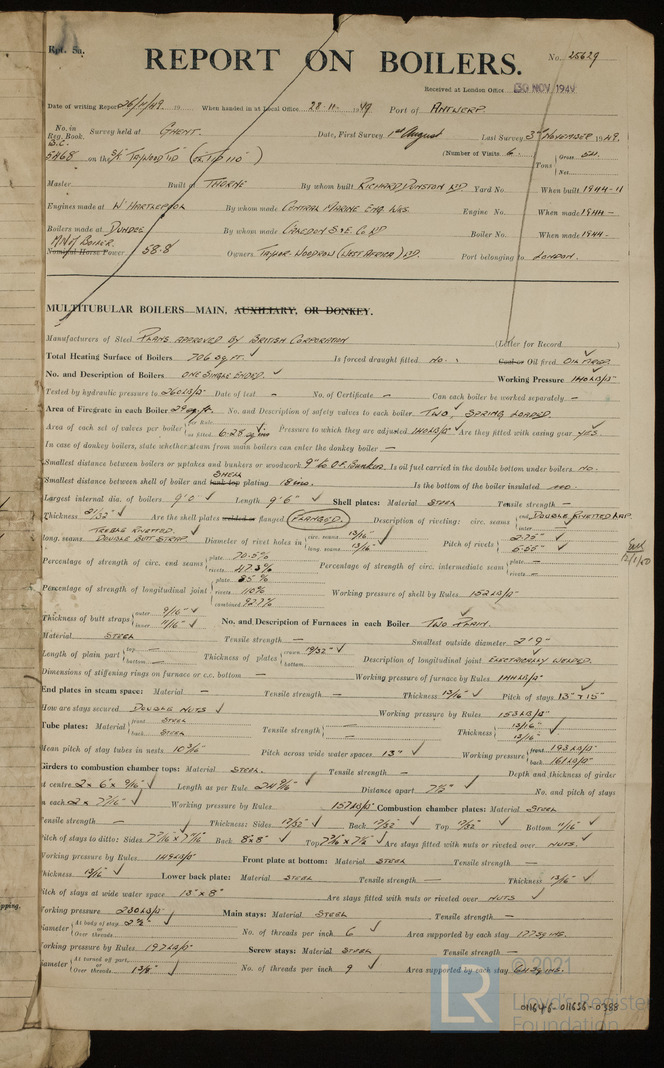 Rpt. 5a.
REPORT ON BOILERS.
No. 25629
Received at London Office 30 NOV 1949
Date of writing Report 26/11/49. 19 When handed in at Local Office 28-11- 1949 Port of ANTWERP
No. in Reg. Book. Survey held at GHENT. Date, First Survey 1st August Last Survey 3rd NOVEMBER 1949.
B.C.
5468 on the (Number of Visits 6 ) Tons { Gross 54. Net
Master Built at THORNE By whom built RICHARD DUNSTON LTD. Yard No. When built 1944-11
Engines made at W HARTLEPOOL By whom made CENTRAL MARINE ENG. WKS. Engine No. When made 1944-
Boilers made at DUNDEE By whom made CALEDON S&E. Co LTD Boiler No. When made 1944-
MN of BOILER.
Nominal Horse Power 58.8 Owners TAYLOR WOODROW (WEST AFRICA) LTD. Port belonging to LONDON.
MULTITUBULAR BOILERS—MAIN, AUXILIARY, OR DONKEY.
Manufacturers of Steel PLANS APPROVED BY BRITISH CORPORATION (Letter for Record )
Total Heating Surface of Boilers 706 sq.ft. Is forced draught fitted NO. Coal or Oil fired OIL FIRED
No. and Description of Boilers ONE SINGLE ENDED Working Pressure 140 LB/□"
Tested by hydraulic pressure to 260 LB/□" Date of test - No. of Certificate — Can each boiler be worked separately —
Area of Firegrate in each Boiler 29 sq.ft. No. and Description of safety valves to each boiler TWO, SPRING LOADED.
Area of each set of valves per boiler { per Rule as fitted 6.28 Pressure to which they are adjusted 140 LB/□" Are they fitted with easing gear YES.
In case of donkey boilers, state whether steam from main boilers can enter the donkey boiler —
Smallest distance between boilers or uptakes and bunkers or woodwork 9" to O.F. Bunker. Is oil fuel carried in the double bottom under boilers NO.
Smallest distance between shell of boiler and tank top SHELL plating 18 ins. Is the bottom of the boiler insulated NO.
Largest internal dia. of boilers 9'0" Length 9'6" Shell plates: Material STEEL Tensile strength —
Thickness 21/32" Are the shell plates welded or flanged (FLANGED.) Description of riveting: circ. seams { end DOUBLE RIVETTED LAP. inter.
long. seams TREBLE RIVETTED DOUBLE BUTT STRAP. Diameter of rivet holes in { circ. seams 13/16" long. seams 13/16" Pitch of rivets { 2.75" 5.56"
Percentage of strength of circ. end seams { plate 70.5% rivets 47.3% Percentage of strength of circ. intermediate seam { plate — rivets —
Percentage of strength of longitudinal joint { plate 85% rivets 110% combined 92.7% Working pressure of shell by Rules 152 LB/□"
Thickness of butt straps { outer 9/16" inner 11/16" No. and Description of Furnaces in each Boiler TWO PLAIN.
Material STEEL Tensile strength — Smallest outside diameter 2'9"
Length of plain part { top — bottom — Thickness of plates { crown 19/32" bottom Description of longitudinal joint ELECTRICALLY WELDED.
Dimensions of stiffening rings on furnace or c.c. bottom — Working pressure of furnace by Rules 144 LB/□"
End plates in steam space: Material — Tensile strength — Thickness 13/16" Pitch of stays 13" x 15"
How are stays secured DOUBLE NUTS Working pressure by Rules 153 LB/□"
Tube plates: Material { front STEEL back STEEL Tensile strength { — — Thickness { 13/16" 13/16"
Mean pitch of stay tubes in nests 10 3/16" Pitch across wide water spaces 13" Working pressure { front 193 LB/□" back 161 LB/□"
Girders to combustion chamber tops: Material STEEL. Tensile strength — Depth and thickness of girder
at centre 2 x 6" x 9/16" Length as per Rule 24 9/16" Distance apart 7 1/2" No. and pitch of stays
in each 2 x 7 7/16" Working pressure by Rules 157 LB/□" Combustion chamber plates: Material STEEL
Tensile strength — Thickness: Sides 17/32" Back 17/32" Top 17/32" Bottom 11/16"
Pitch of stays to ditto: Sides 7 7/16" x 7 7/16" Back 8" x 8" Top 7 7/16" x 7 1/2" Are stays fitted with nuts or riveted over NUTS.
Working pressure by Rules 145 LB/□" Front plate at bottom: Material STEEL Tensile strength —
Thickness 13/16" Lower back plate: Material STEEL Tensile strength — Thickness 13/16"
Pitch of stays at wide water space 13" x 8" Are stays fitted with nuts or riveted over NUTS
Working pressure 230 LB/□" Main stays: Material STEEL Tensile strength —
Diameter { At body of stay 2 1/2" or Over threads No. of threads per inch 6 Area supported by each stay 177 sq ins.
Working pressure by Rules 197 LB/□" Screw stays: Material STEEL Tensile strength —
Diameter { At turned off part, or Over threads 1 3/8" No. of threads per inch 9 Area supported by each stay 64 sq ins.
© 2021
LR
Lloyd's Register
Foundation
011646-011656-0388